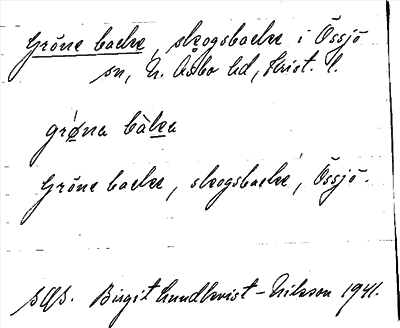 Gröne backe, skogsbacke i Össjö
sn, N. Åsbo hd, Krist. l.
grøna bàka
Gröne backe, skogsbacke, Össjö.
Birgit Lundkvist-Nilsson 1941.